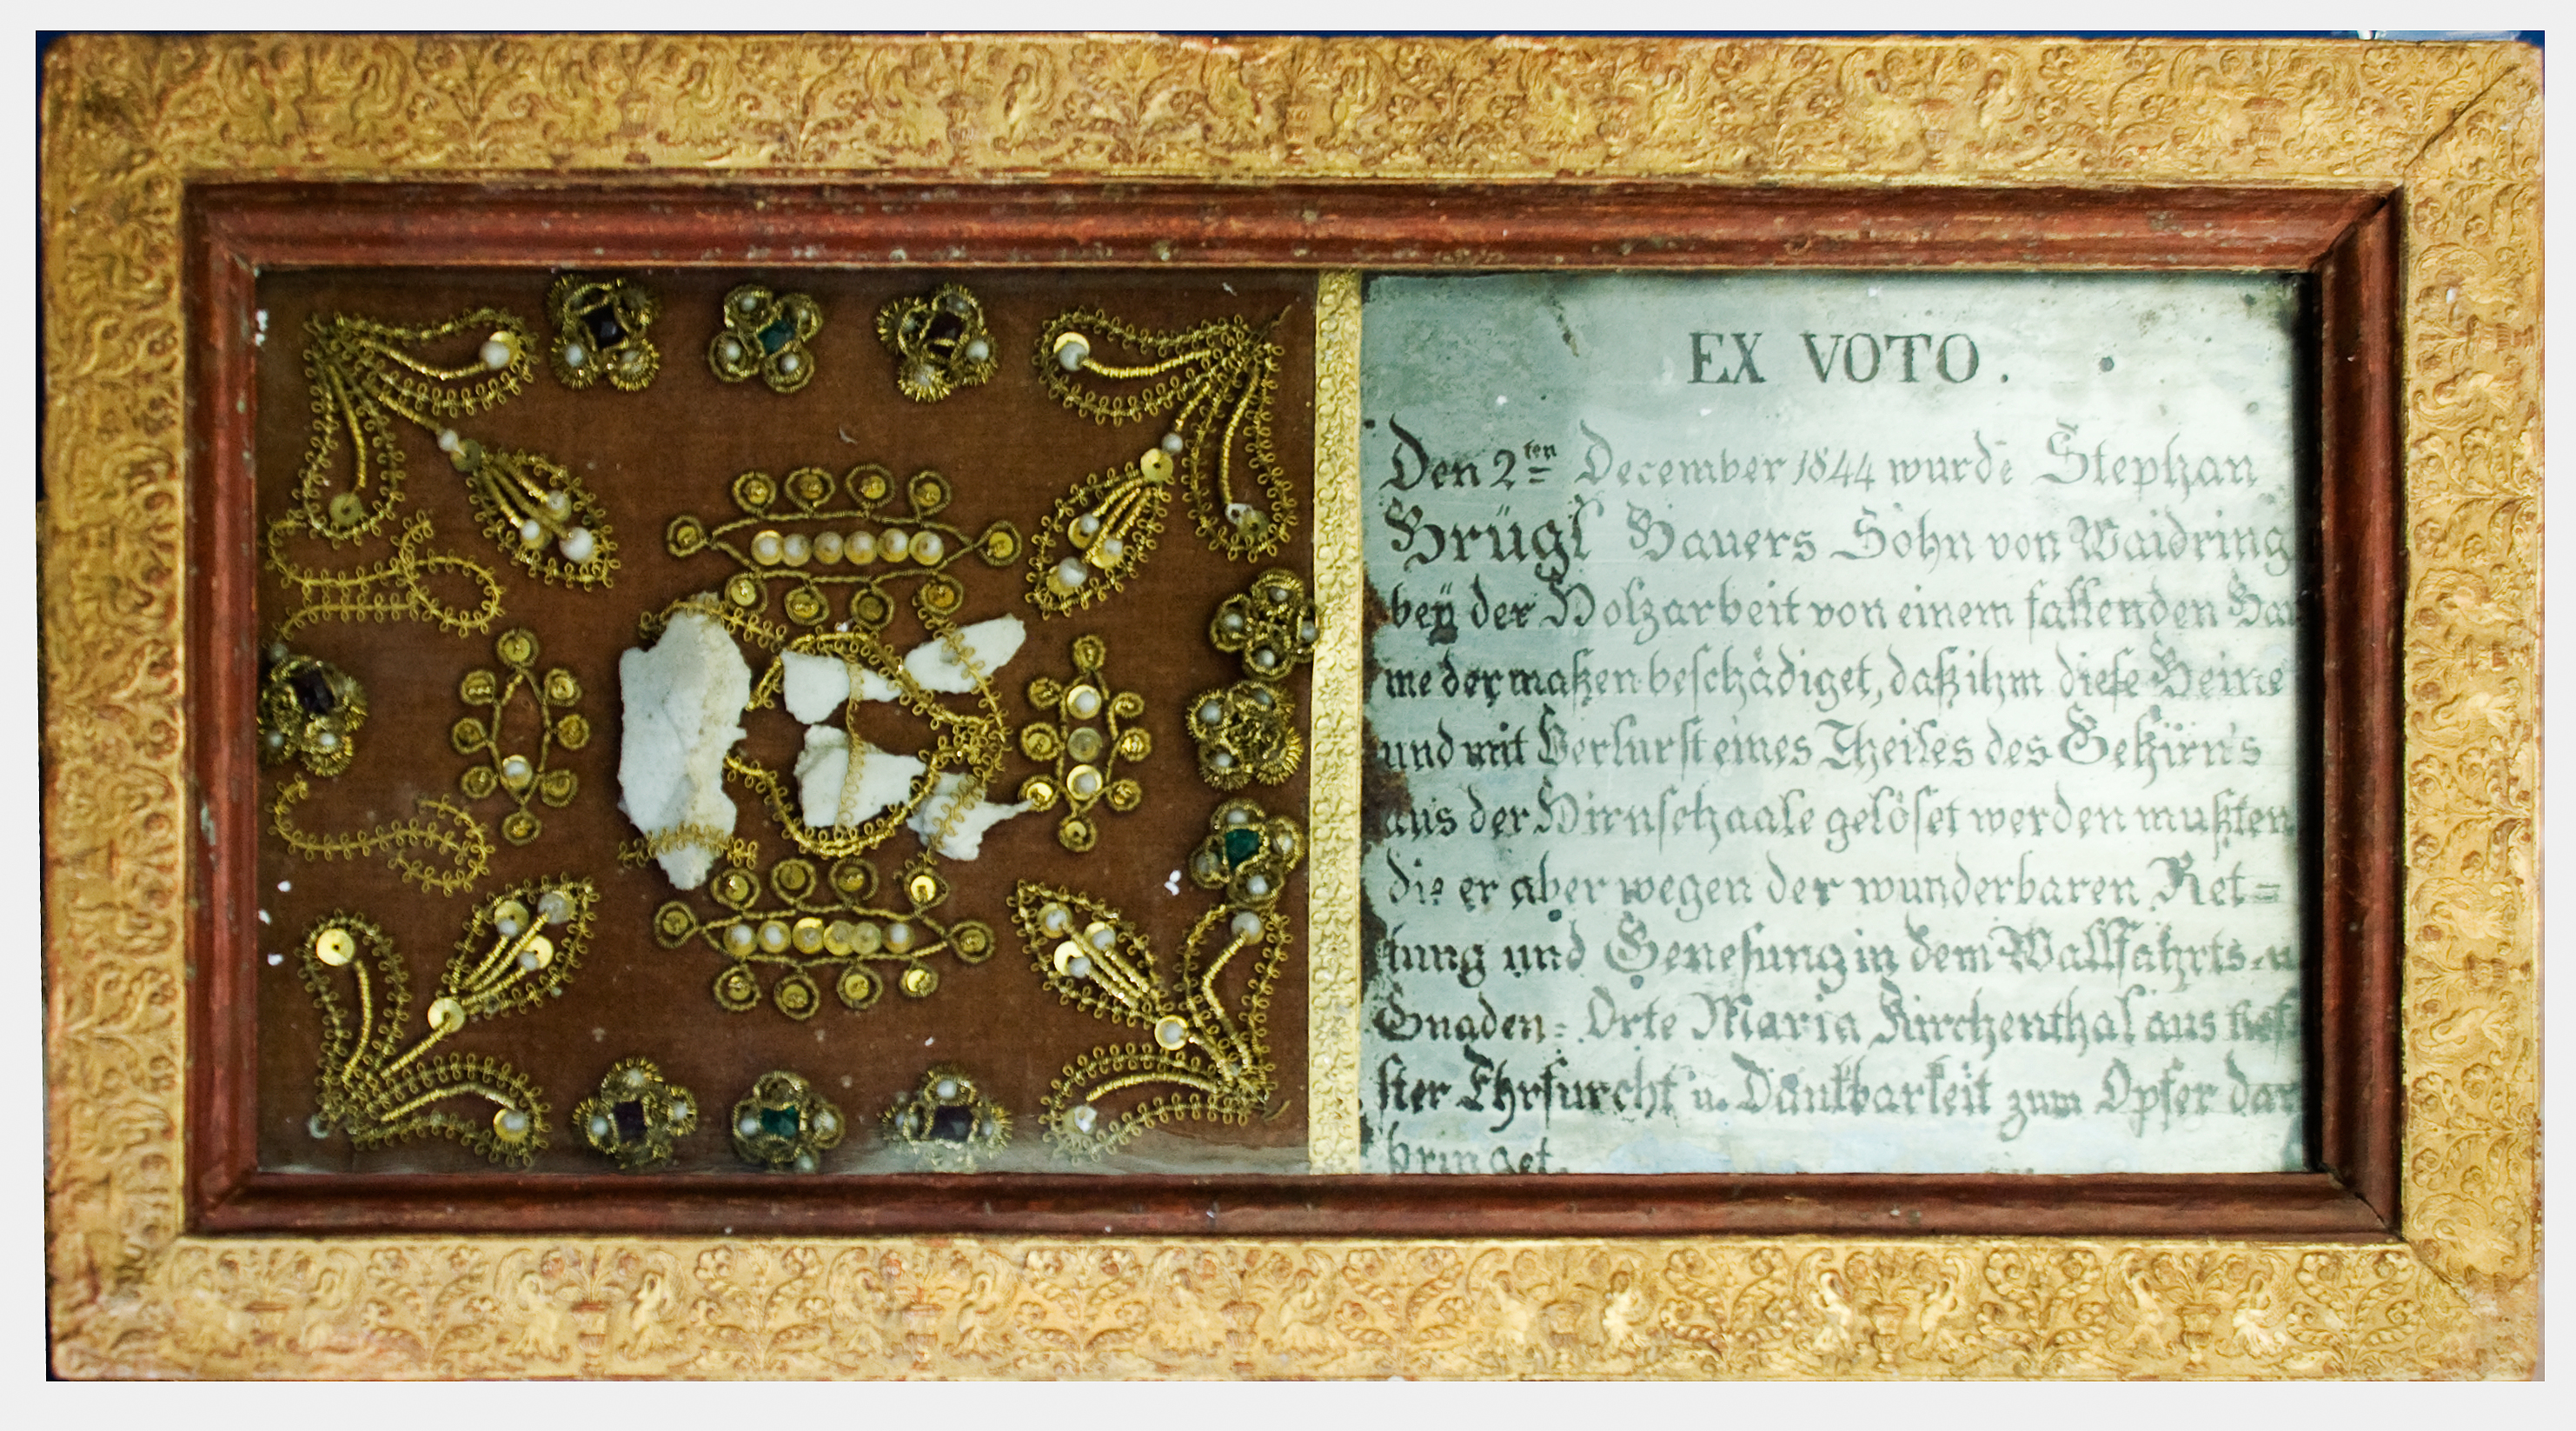 EX VOTO.
Den 2ten December 1844 wurde Stephan
Brügl Bauers Sohn von Waidring
bey der Holzarbeit von einem fallenden Bau
me dermaßen beschädiget, daß ihm diese Beine
und mit Verlurst eines Theiles des Gehirn's
aus der Hirnschaale gelöset werden mußten
die er aber wegen der wunderbaren Ret=
tung und Genesung in dem Wallfahrts-u
Gnaden= Orte Maria Kirchenthal aus tief
ster Ehrfurcht u. Dankbarkeit zum Opfer dar
bringet.